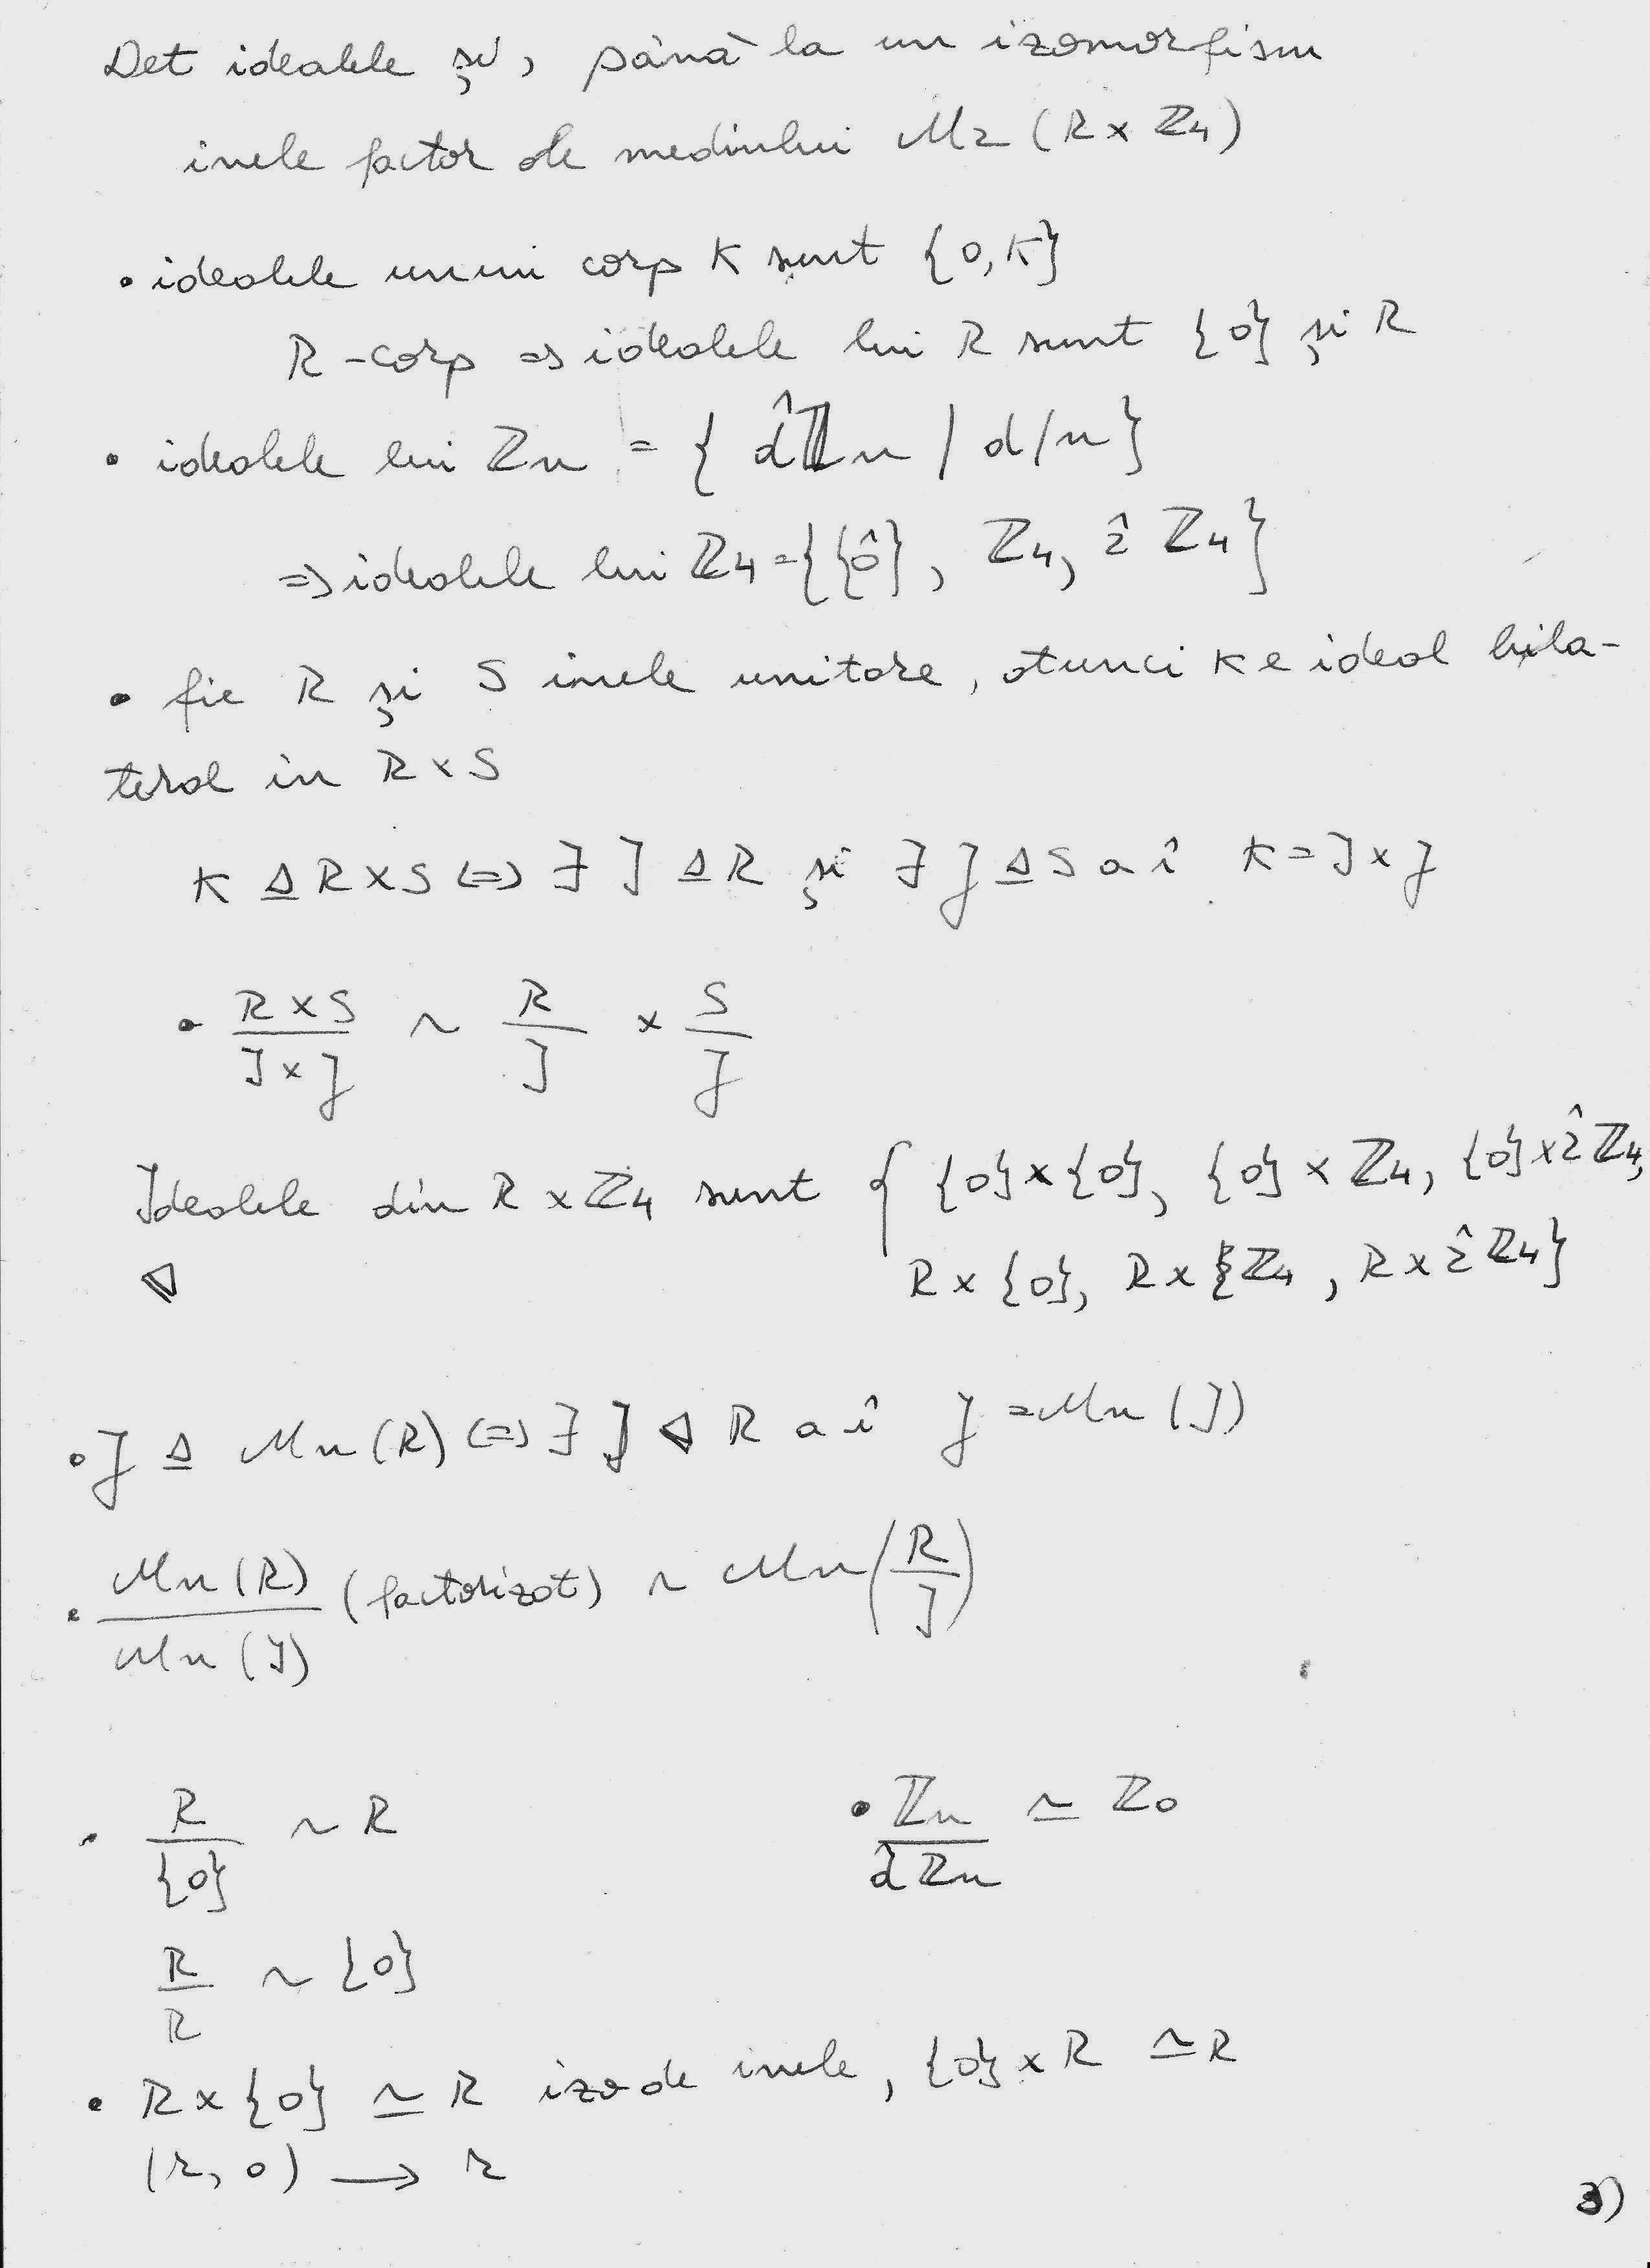 Det idealele și, până la un izomorfism
inele factor ale mediului M2 (R x Z4)
• idealele unui corp K sunt {0, K}
R - corp => idealele lui R sunt {0} și R
• idealele lui Zn = { d̂Zn / d/n}
=> idealele lui Z4 = {{0̂}, Z4, 2̂ Z4}
• fie R și S inele unitare, atunci K e ideal bila-
teral în R x S
K ⊴ R x S <=> ∃ I ⊴ R și ∃ J ⊴ S a î K = I x J
• (R x S)/(I x J) ~ R/I x S/J
Idealele din R x Z4 sunt { {0} x {0}, {0} x Z4, {0} x 2̂ Z4,
R x {0}, R x Z4, R x 2̂ Z4}
• J ⊴ Mn (R) <=> ∃ I ⊲ R a î J = Mn (I)
• Mn (R)/Mn (I) (factorizat) ~ Mn (R/I)
• R/{0} ~ R • Zn/d̂Zn ≃ Z0
R/R ~ {0}
• R x {0} ≃ R izo de inele, {0} x R ≃ R
(r, 0) → r
3)